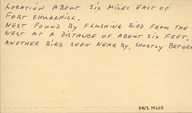 LOCATION ABOUT SIX MILES EAST OF
FORT CHURCHILL.
NEST FOUND BY FLUSHING BIRD FROM THE
NEST AT A DISTANCE OF ABOUT SIX FEET.
ANOTHER BIRD SEEN NEAR BY, SHORTLY BEFORE